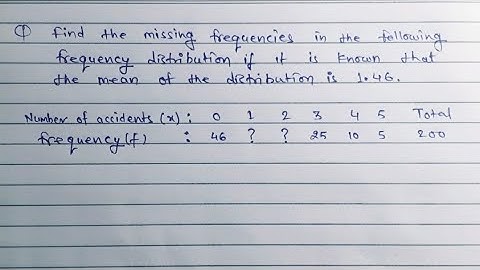 Q Find the missing frequencies in the following
frequency distribution if it is known that
the mean of the distribution is 1.46.
Number of accidents (x) : 0 1 2 3 4 5 Total
frequency(f) : 46 ? ? 25 10 5 200